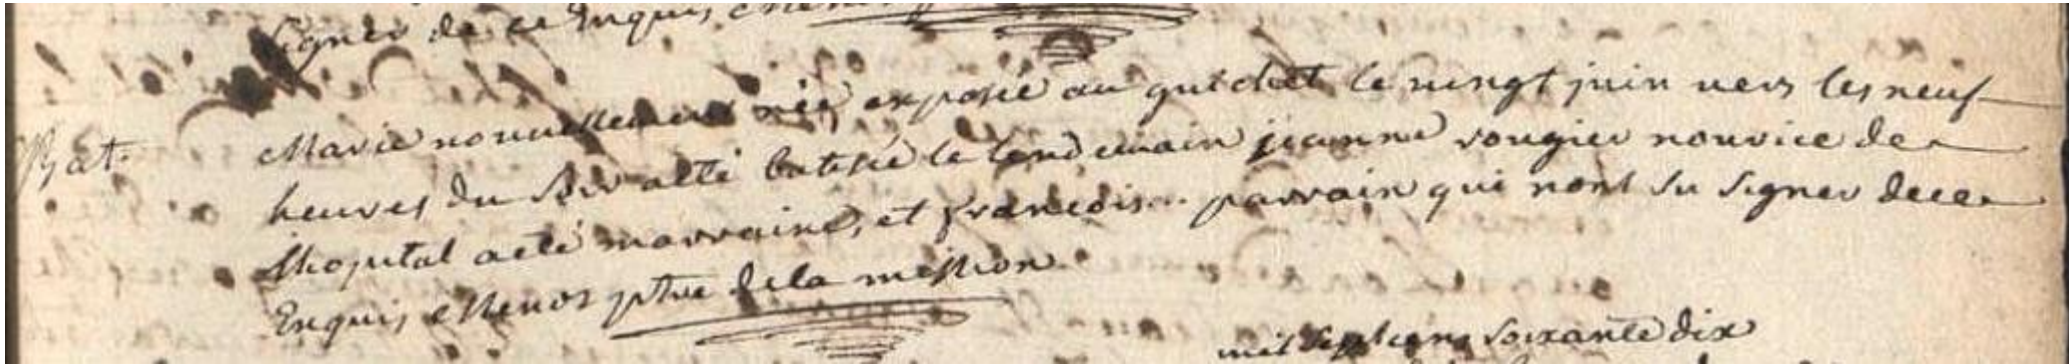 signer de ce Enquis
Bat. Marie nouvellement née exposée au guichet le vingt juin vers les neuf
heures du soir a été batisée le lendemain jeanne rougier nourice de
lhopital a eté marraine, et francois.. parrain qui nont su signer de ce
Enquis Menos ptre de la mission
mil sept cens soixante dix